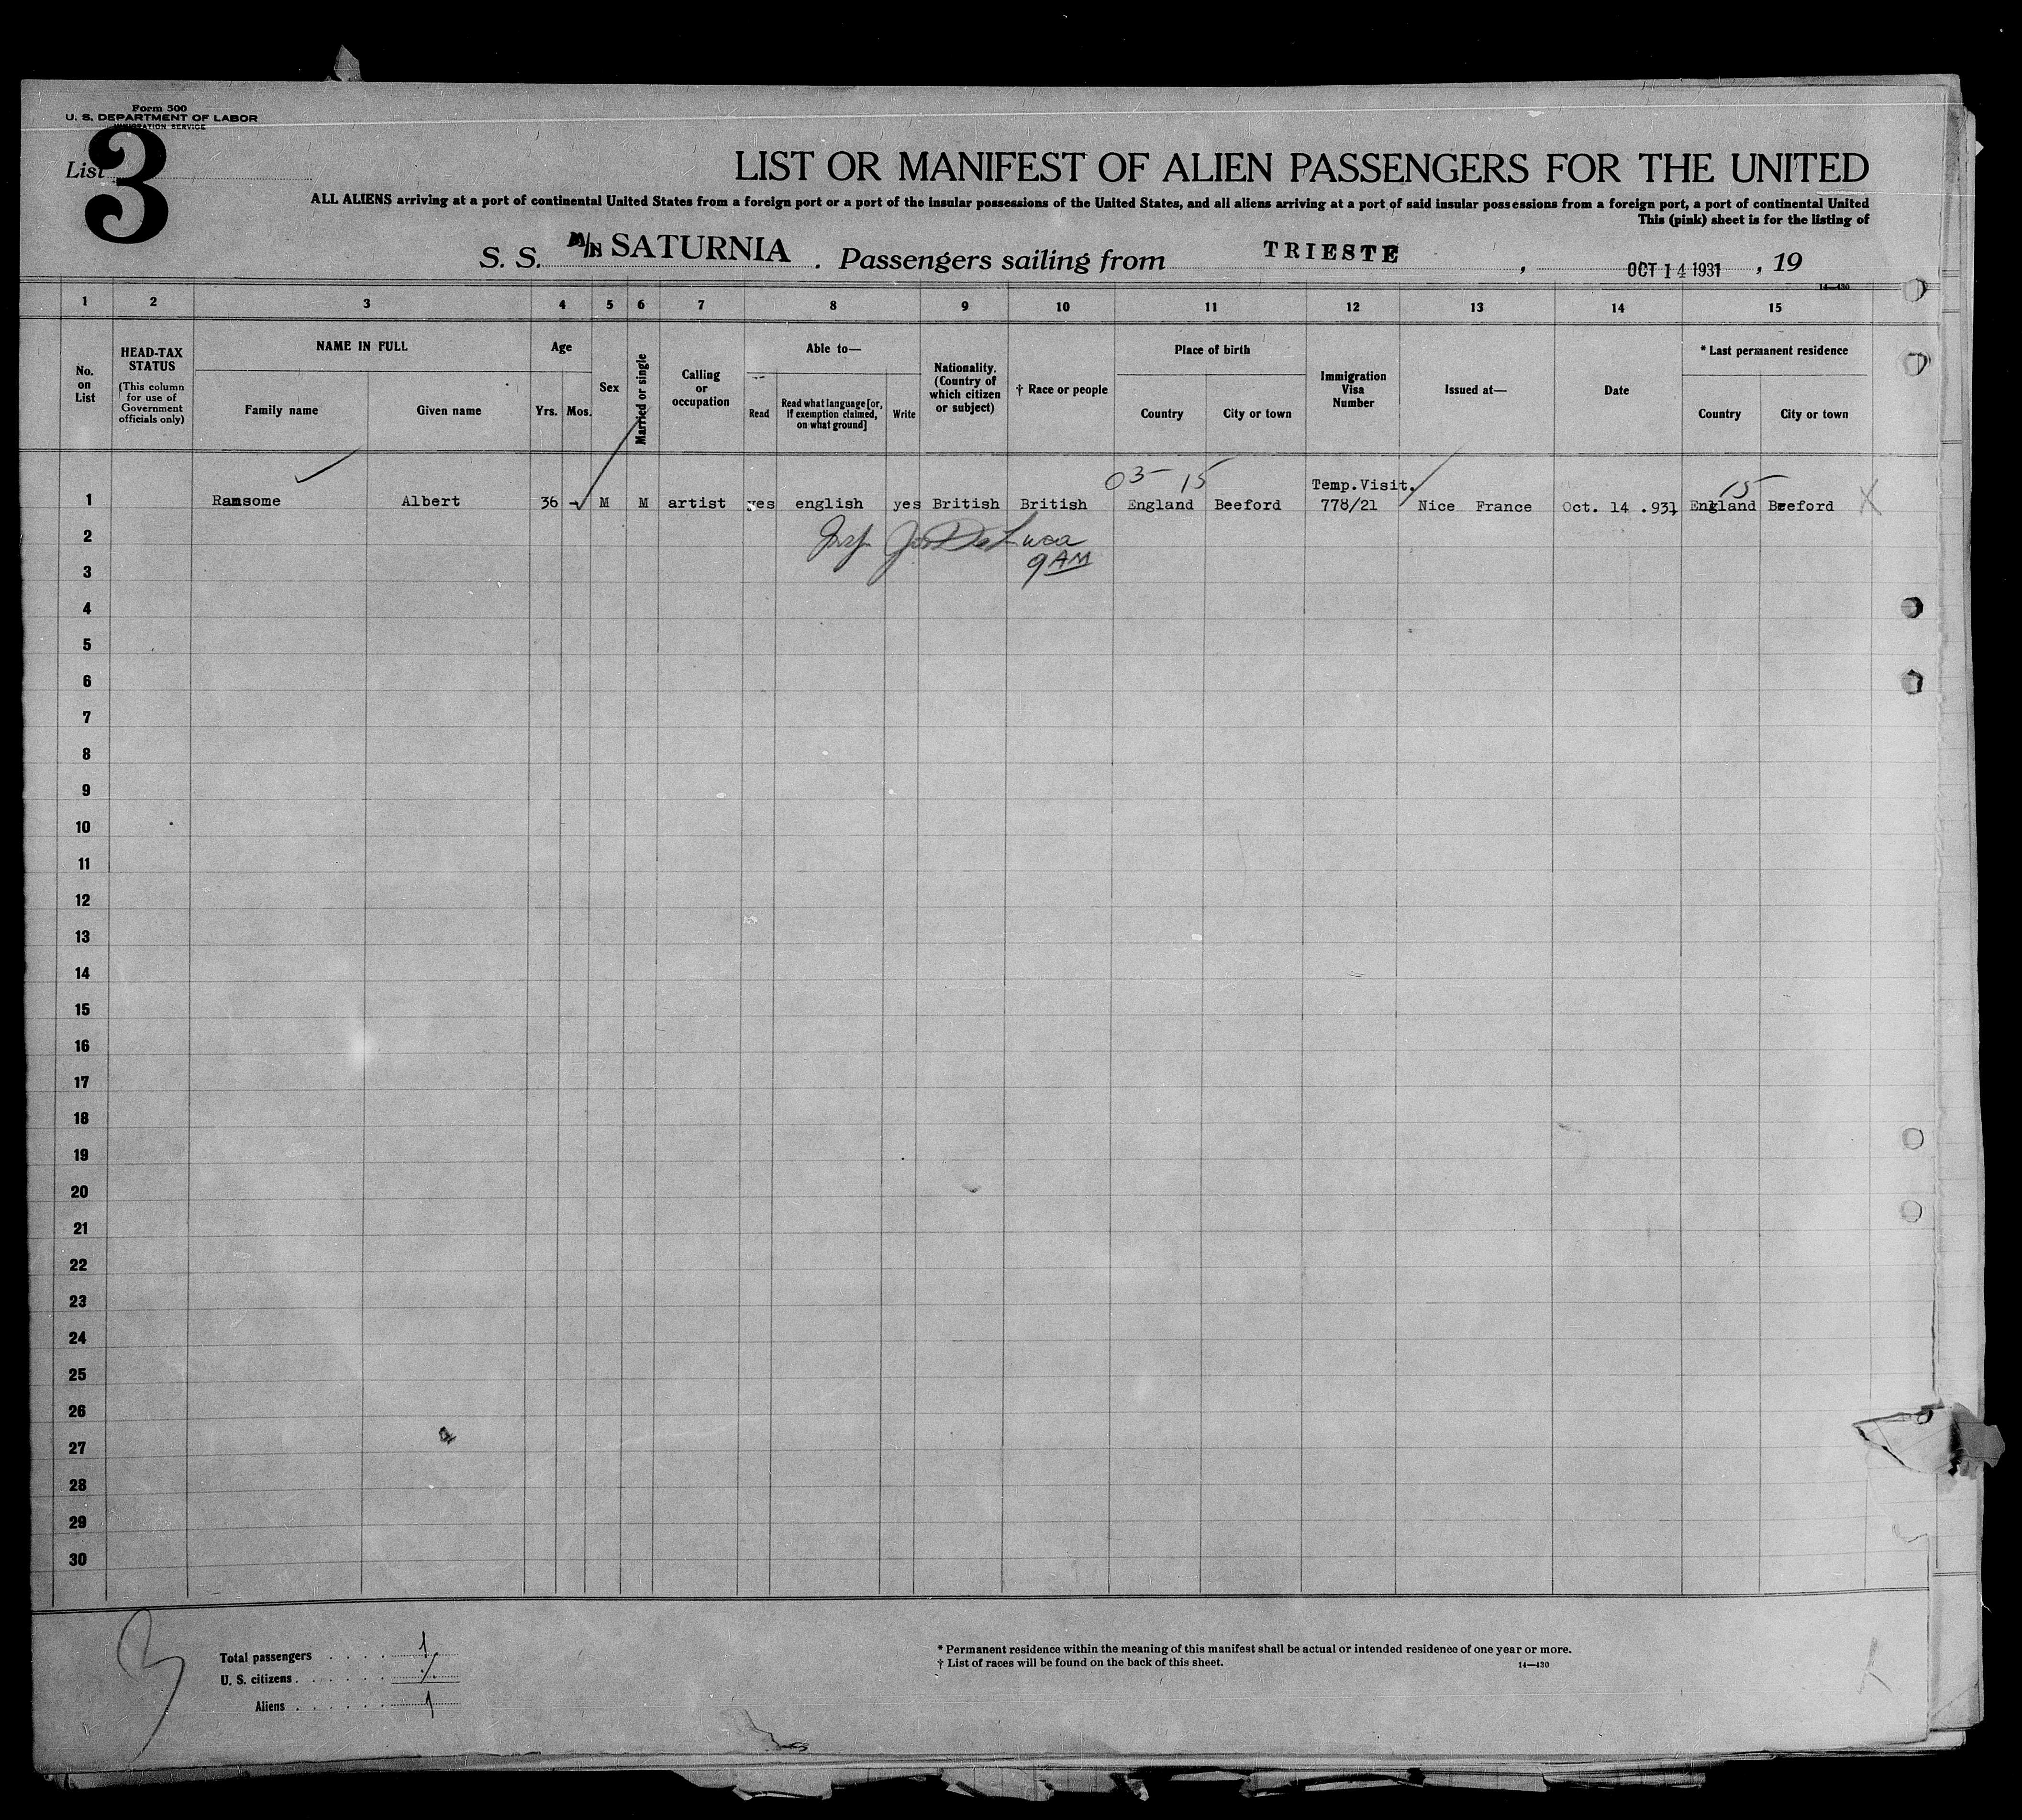 Form 500
U. S. DEPARTMENT OF LABOR
IMMIGRATION SERVICE
List 3
LIST OR MANIFEST OF ALIEN PASSENGERS FOR THE UNITED
ALL ALIENS arriving at a port of continental United States from a foreign port or a port of the insular possessions of the United States, and all aliens arriving at a port of said insular possessions from a foreign port, a port of continental United
This (pink) sheet is for the listing of
S. S. M/N SATURNIA . Passengers sailing from TRIESTE , OCT 14 1931 , 19
14—430
1 2 3 4 5 6 7 8 9 10 11 12 13 14 15
No. on List
HEAD-TAX STATUS (This column for use of Government officials only)
NAME IN FULL
Family name Given name
Age
Yrs. Mos.
Sex
Married or single
Calling or occupation
Able to—
Read Read what language [or, if exemption claimed, on what ground] Write
Nationality. (Country of which citizen or subject)
† Race or people
Place of birth
Country City or town
Immigration Visa Number
Issued at—
Date
* Last permanent residence
Country City or town
03 15 15
Temp.Visit.
1 Ransome Albert 36 - M M artist yes english yes British British England Beeford 778/21 Nice France Oct. 14 .931 England Beeford X
2
9 AM
3
4
5
6
7
8
9
10
11
12
13
14
15
16
17
18
19
20
21
22
23
24
25
26
27
28
29
30
Total passengers . . . . 1
U. S. citizens . . . . . . /.
Aliens . . . . . . 1
* Permanent residence within the meaning of this manifest shall be actual or intended residence of one year or more.
† List of races will be found on the back of this sheet. 14—430